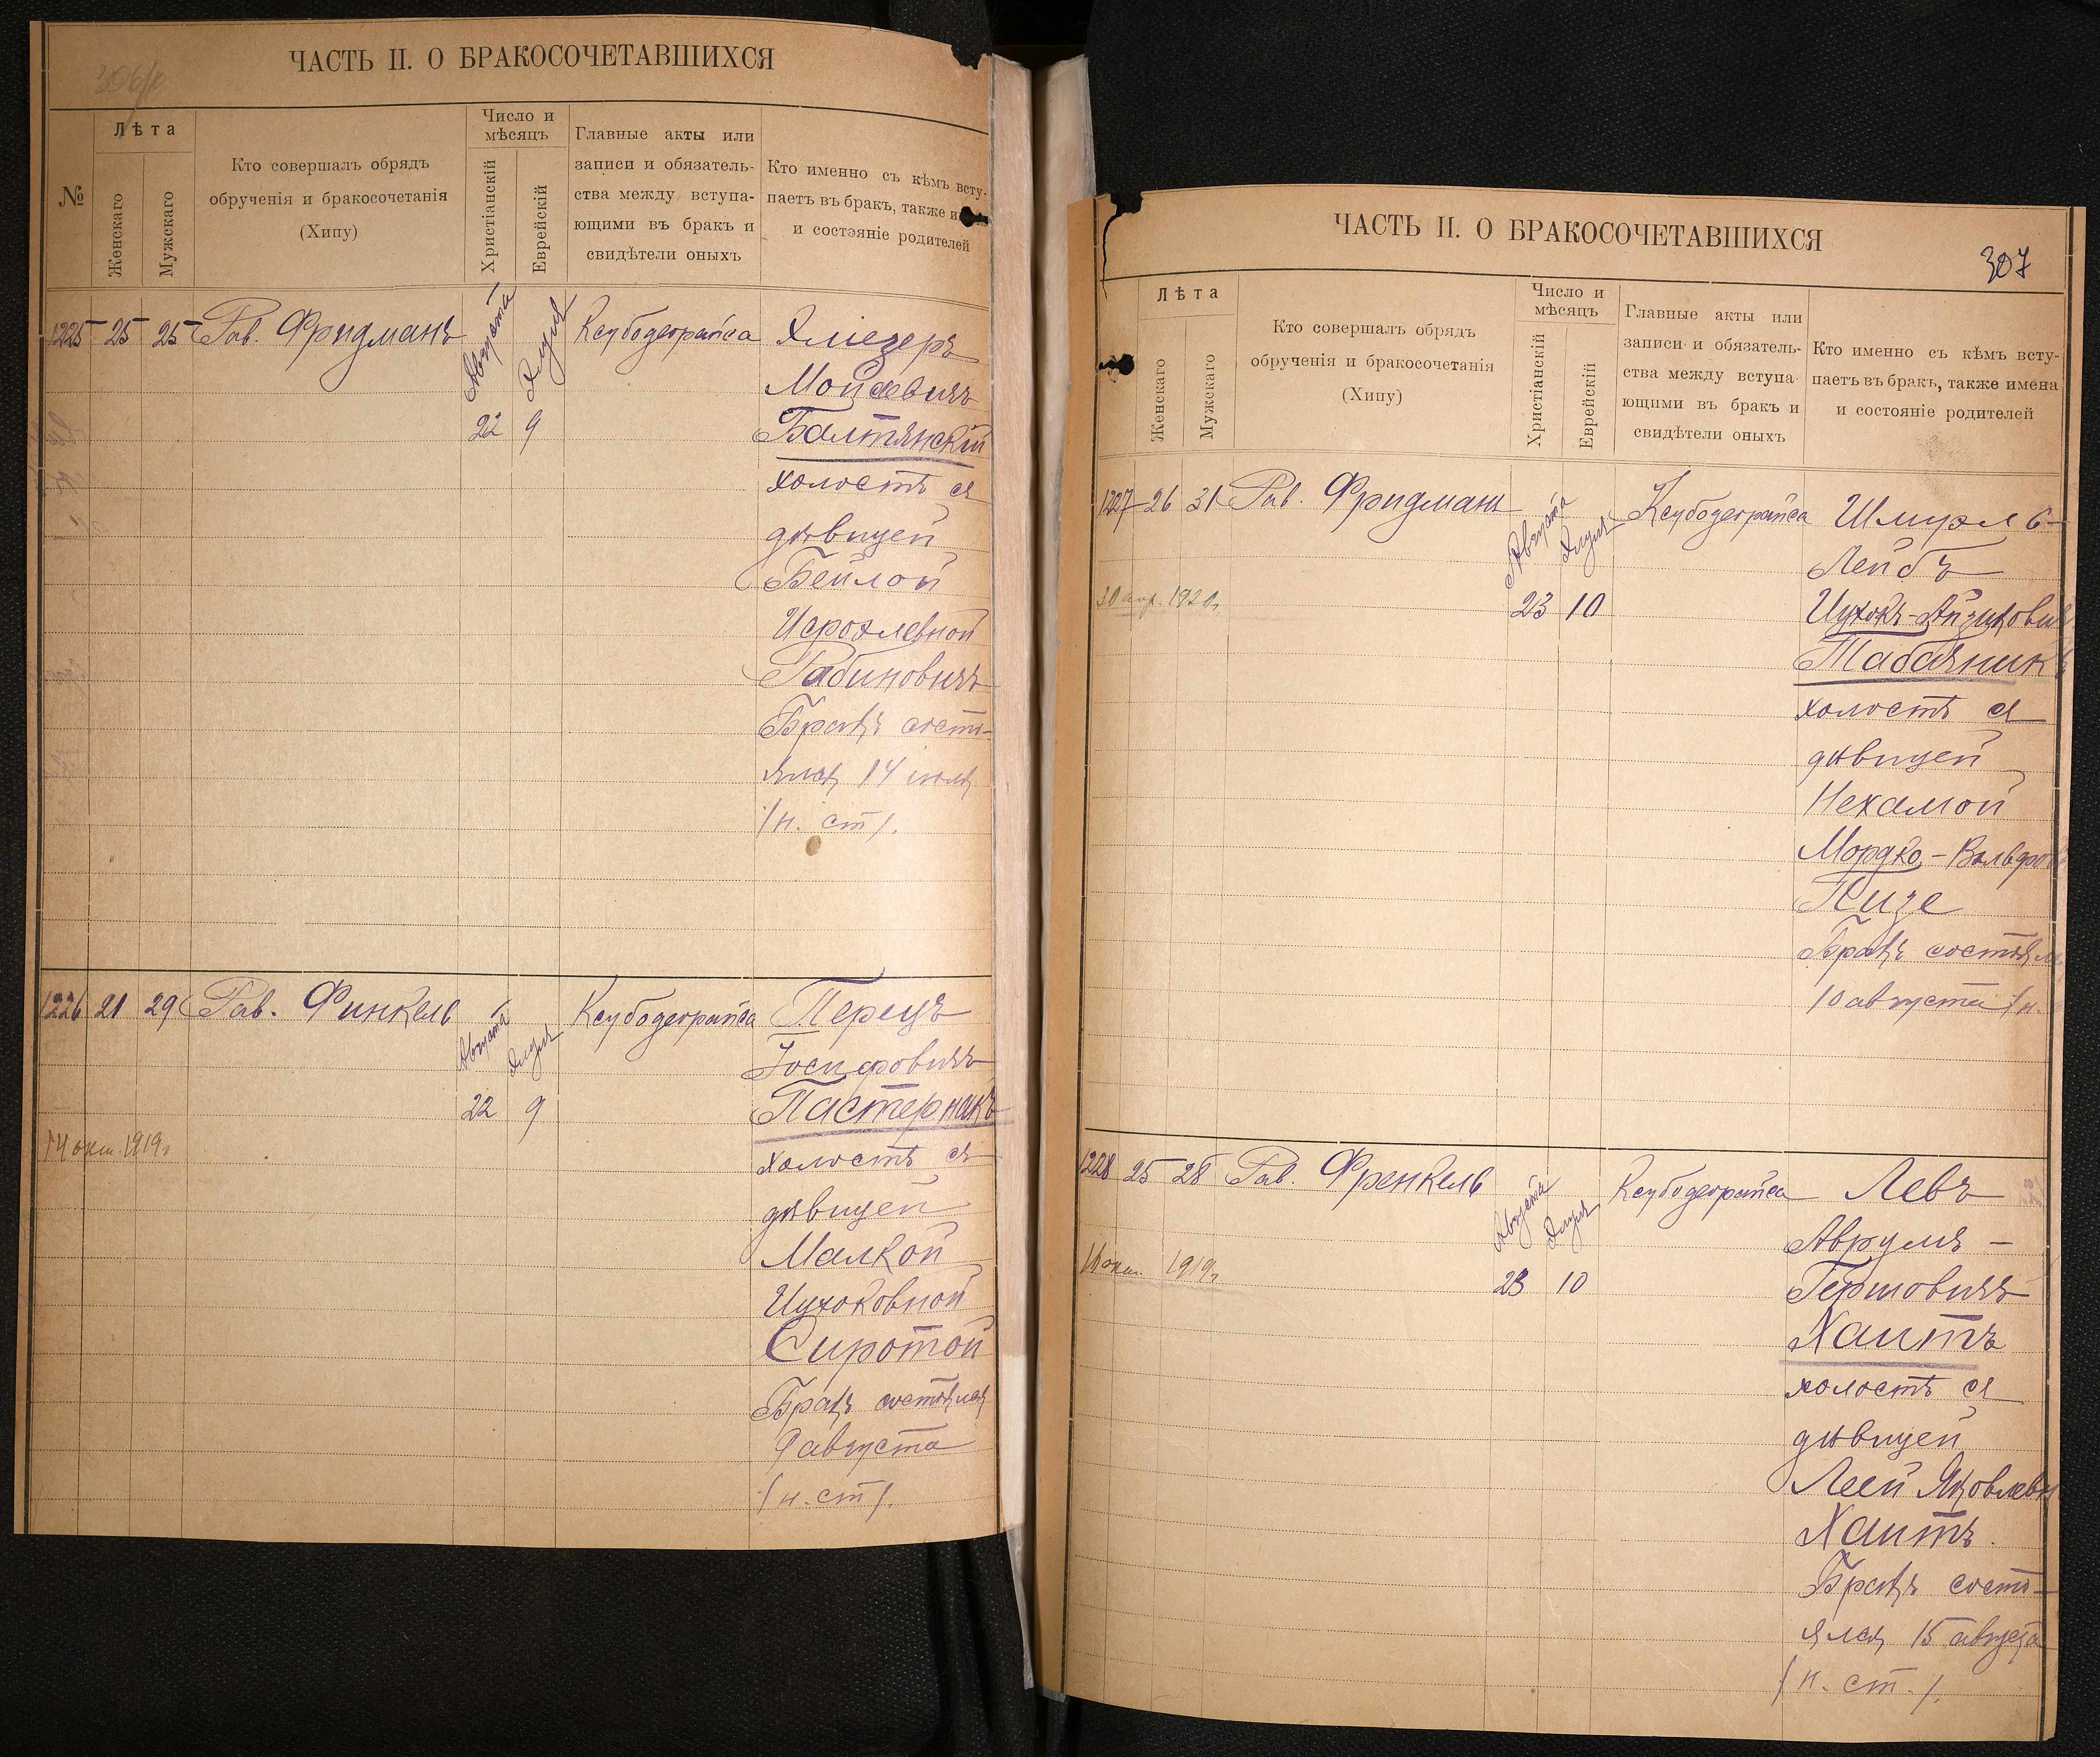 ЧАСТЬ II. О БРАКОСОЧЕТАВШИХСЯ
№
Лѣта
Женскаго
Мужскаго
Кто совершалъ обрядъ
обрученія и бракосочетанія
(Хипу)
Число и
мѣсяцъ
Христіанскій
Еврейскій
Главные акты или
записи и обязатель-
ства между вступа-
ющими въ бракъ и
свидѣтели оныхъ
Кто именно съ кѣмъ всту-
паетъ въ бракъ, также и
и состояніе родителей
1225 25 25 Рав. Фридманъ Августа Элуля Ксубодеорайса Элиезеръ
Мойсевичъ
22 9 Балтянскій
холостъ съ
дѣвицей
Бейлой
Исроэлевной
Рабиновичъ
Бракъ состо-
ялся 14 июля
/н. ст/.
1226 21 29 Рав. Финкель Августа Элуля Ксубодеорайса Перецъ
Іосифовичъ
22 9 Пастернакъ
14 окт. 1919г
холостъ съ
дѣвицей
Малкой
Ицхоковной
Сиротой
Бракъ состоялся
9 августа
/н. ст/.
ЧАСТЬ II. О БРАКОСОЧЕТАВШИХСЯ
307
Лѣта
Женскаго
Мужскаго
Кто совершалъ обрядъ
обрученія и бракосочетанія
(Хипу)
Число и
мѣсяцъ
Христіанскій
Еврейскій
Главные акты или
записи и обязатель-
ства между вступа-
ющими въ бракъ и
свидѣтели оныхъ
Кто именно съ кѣмъ всту-
паетъ въ бракъ, также имена
и состояніе родителей
1227 26 31 Рав. Фридманъ Августа Элуля Ксубодеорайса Шмуэль-
Лейбъ
30 апр. 1920г. 23 10 Ицхокъ-Айзиковичъ
Табачникъ
холостъ съ
дѣвицей
Нехамой
Мордко-Вольфов
Кизе
Бракъ состоял
10 августа /н.
1228 25 28 Рав. Френкель Августа Элуля Ксубодеорайса Левъ
Аврумъ-
16 окт. 1919г 23 10 Гершовичъ
Хаитъ
холостъ съ
дѣвицей
Леей Яковлевн
Хаитъ.
Бракъ состо-
ялся 15 августа
/н. ст./.